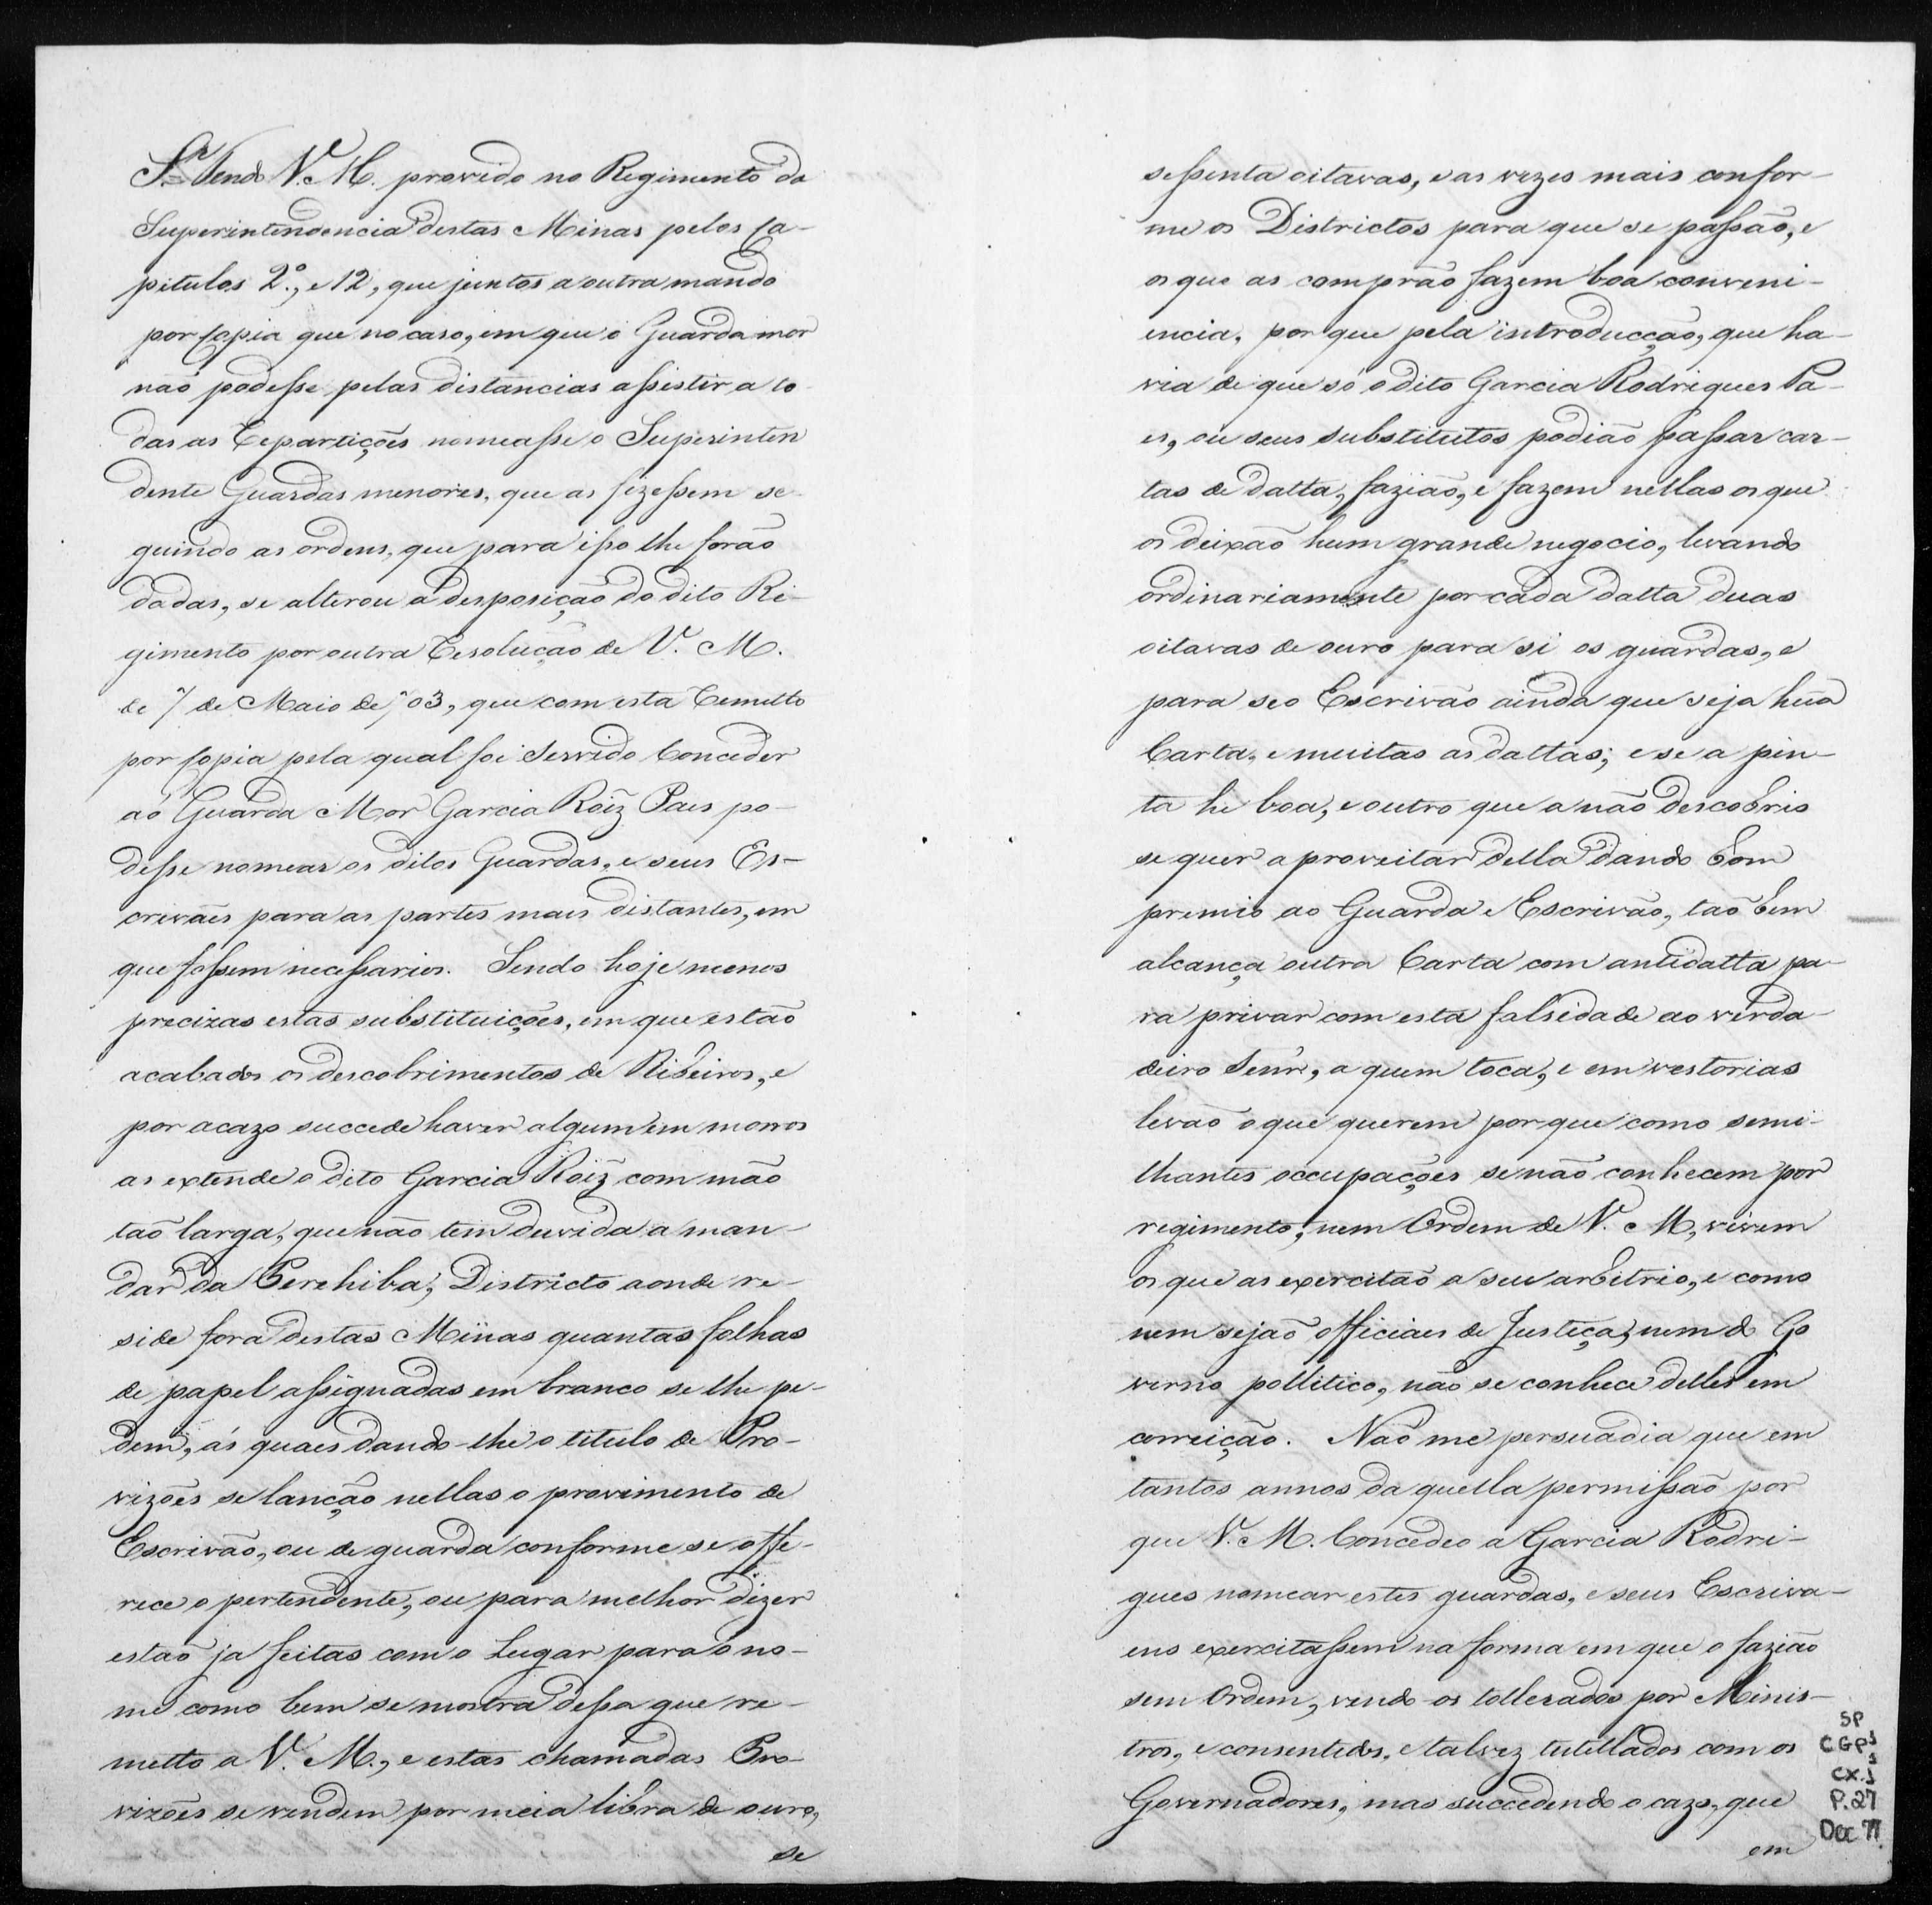 Sr. Tendo V. M. provido no Regimento da
Superintendencia destas Minas pelos Ca-
pitulos 2º., e 12, que juntos a outra mando
por Copia que no caso, em que o Guarda mór
não podesse pelas distancias assistir a to
das as Repartições nomeasse o Superinten
dente Guardas menores, que as fizessem se-
guindo as ordens, que para isso lhe forão
dadas, se alterou a desposição do dito Re-
gimento por outra Resolução de V. M.
de 7 de Maio de 703, que com esta Remetto
por Copia pela qual foi Servido Conceder
ao Guarda Mor Garcia Roiz Paes po-
desse nomear os ditos Guardas, e seus Es-
crivães para as partes mais distantes, em
que fossem necessarios. Sendo hoje menos
precizas estas substituições, em que estão
acabados os descobrimentos de Ribeiros, e
por acazo succede haver algum em morros
as extende o dito Garcia Roiz com mão
tão larga, que não tem duvida a man-
dar da Perehiba, Districto aonde re-
side fora destas Minas quantas folhas
de papel assignadas em branco se lhe pe-
dem, ás quaes dando-lhe o titulo de Pro-
vizões se lanção nellas o provimento de
Escrivão, ou de guarda conforme se offe-
rece o pertendente, ou para melhor dizer
estão ja feitas com o Lugar para o no-
me como bem se mostra dessa que re-
metto a V. M., e estas chamadas Pro-
vizões se vendem por meia libra de ouro,
se
sessenta oitavas, e as vezes mais confor-
me os Districtos para que se passão, e
os que as comprão fazem boa conveni-
encia, por que pela introducção, que ha-
via de que só o dito Garcia Rodrigues Pa-
es, ou seus substitutos podião passar car-
tas de datta, fazião, e fazem nellas os que
os deixão hum grande negocio, levando
ordinariamente por cada datta duas
oitavas de ouro para si os guardas, e
para seo Escrivão ainda que seja hũa
Carta, e muitas as dattas; e se a pin-
ta he boa, e outro que a não descobrio
se quer aproveitar della dando bom
premio ao Guarda e Escrivão, tão bem
alcança outra Carta com antidatta pa-
ra privar com esta falsidade ao verda
deiro Senr, a quem toca, e em vestorias
levão o que querem por que como semi-
lhantes occupações se não conhecem por
regimento, nem Ordem de V. M, vivem
os que as exercitão a seu arbitrio, e como
nem sejão officiaes de Justiça, nem do Go
verno pollitico, não se conhece delles em
correição. Não me persuadia que em
tantos annos da quella permissão por
que V. M. Concedeo a Garcia Rodri-
gues nomear estes guardas, e seus Escriva-
ens exercitassem na forma em que o fazião
sem Ordem, vendo-os tollerados por Minis-
tros, e consentidos, e talvez tutellados com os
Governadores, mas succedendo o cazo, que
em
SP
CGPS
CX.1
P.27
Doc 77.